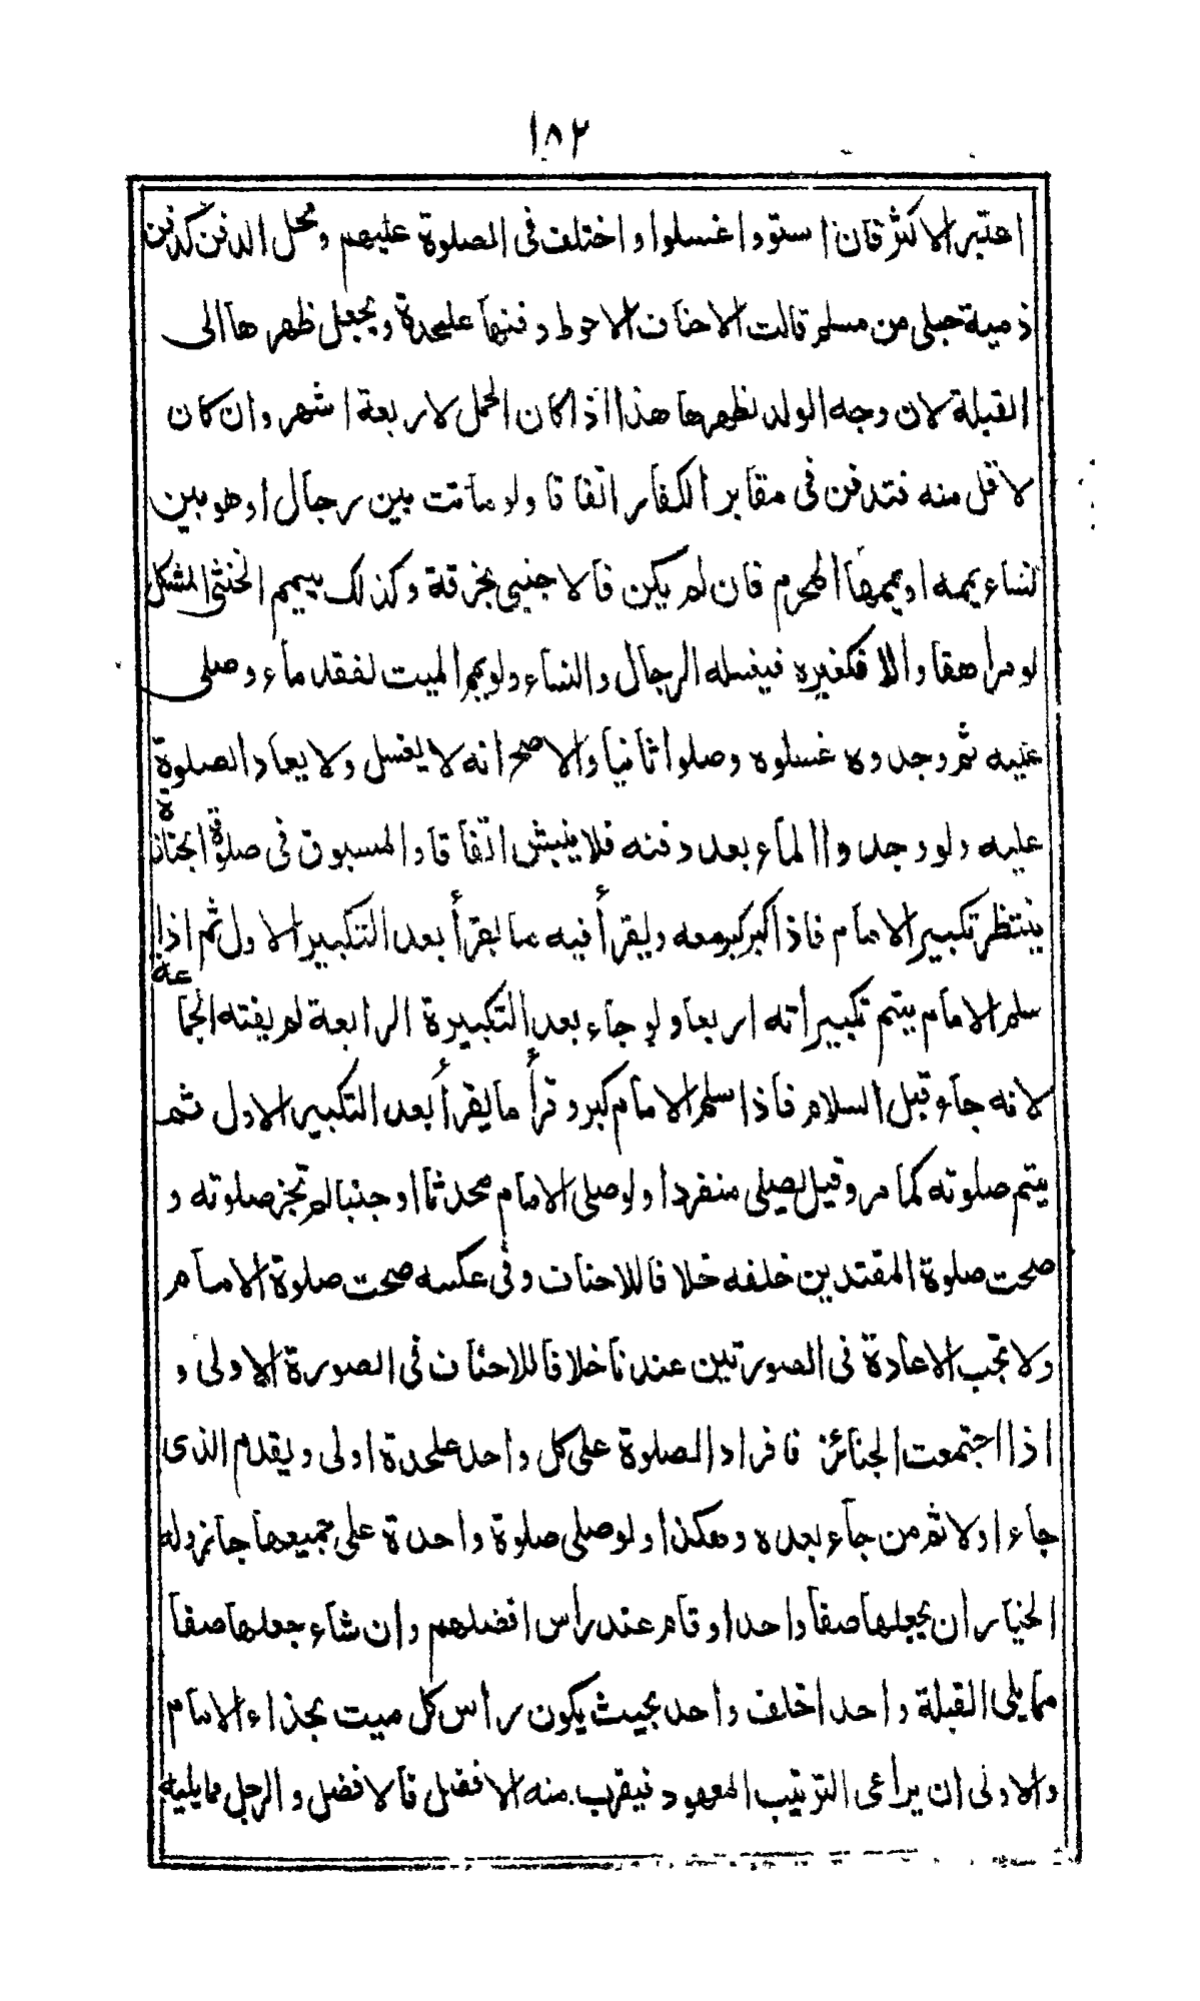 ١٨٢
اعتبر الاكثر فان استووا غسلوا واختلف فى الصلوة عليهم ومحل الدفن كدفن
ذمية حبلى من مسلم قالت الاحناف الاحوط دفنها علىحدة ويجعل ظهرها الى
القبلة لان وجه الولد لظهرها هذا اذا كان الحمل لاربعة اشهر وان كان
لاقل منه فتدفن فى مقابر الكفار اتفاقا ولو ماتت بين رجال او هو بين
نساء يممه او يممها المحرم فان لم يكن فالاجنبى بخرقة وكذلك ييمم الخنثى المشكل
لو مراهقا والا فكغيره فيغسله الرجال والنساء ولو يمم الميت لفقد ماء وصلى
عليه ثم وجدوه غسلوه وصلوا ثانيا والاصح انه لا يغسل ولا يعاد الصلوة
عليه ولو وجدوا الماء بعد دفنه فلا ينبش اتفاقا والمسبوق فى صلوة الجنازة
ينتظر تكبير الامام فاذا كبر كبر معه وليقرأ فيه ما يقرأ بعد التكبير الاول ثم اذا
سلم الامام يتم تكبيراته اربعا ولو جاء بعد التكبيرة الرابعة لم يفته الجماعة
لانه جاء قبل السلام فاذا سلم الامام كبر وقرأ ما يقرأ بعد التكبير الاول ثم
يتم صلوته كما مر وقيل يصلى منفردا ولو صلى الامام محدثا او جنبا لم تجز صلوته و
صحت صلوة المقتدين خلفه خلافا للاحناف وفى عكسه صحت صلوة الامام
ولا تجب الاعادة فى الصورتين عندنا خلافا للاحناف فى الصورة الاولى و
اذا اجتمعت الجنائز فافراد الصلوة على كل واحد علىحدة اولى ويقدم الذى
جاء اولا ثم من جاء بعده وهكذا ولو صلى صلوة واحدة على جميعها جاز وله
الخيار ان يجعلها صفا واحدا وقام عند رأس افضلهم وان شاء جعلها صفا
مما يلى القبلة واحدا خلف واحد بحيث يكون رأس كل ميت بحذاء الامام
والاولى ان يراعى الترتيب المعهود فيقرب منه الافضل فالافضل والرجل مما يليه